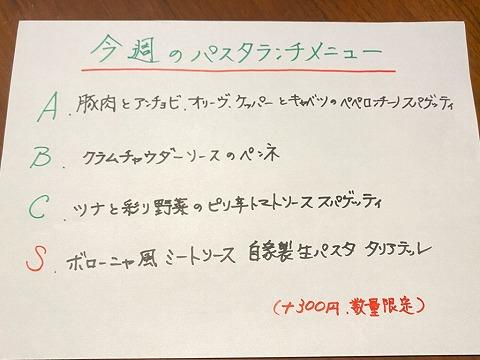 今週のパスタランチメニュー
A. 豚肉とアンチョビ.オリーヴ.ケッパーとキャベツのペペロンチーノスパゲッティ
B. クラムチャウダーソースのペンネ
C. ツナと彩り野菜のピリ辛トマトソース スパゲッティ
S. ボローニャ風 ミートソース 自家製生パスタ タリアテッレ
(+300円.数量限定)